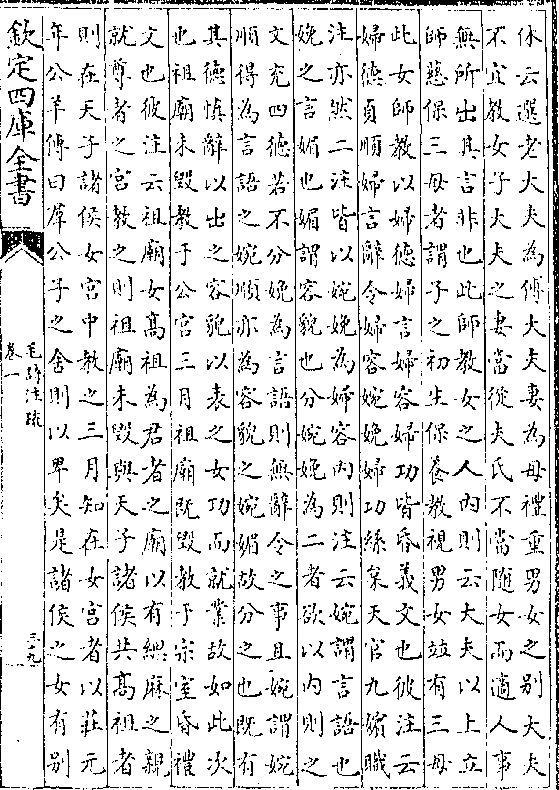 休云選老大夫為傅大夫妻為母禮重男女之别大夫
不宜教女子大夫之妻當從夫氏不當隨女而適人事
無所出其言非也此師教女之人内則云大夫以上立
師慈保三母者謂子之初生保養教視男女並有三母
此女師教以婦德婦言婦容婦功皆昏義文也彼注云
婦德貞順婦言辭令婦容婉娩婦功絲枲天官九嬪職
注亦然二注皆以婉娩為婦容内則注云婉謂言語也
娩之言媚也媚謂容貌也分婉娩為二者欲以内則之
文充四德若不分娩為言語則無辭令之事且婉謂婉
順得為言語之婉順亦為容貌之婉媚故分之也既有
其德慎辭以出之容貌以表之女功而就業故如此次
也祖廟未毁教于公宫三月祖廟既毁教于宗室昏禮
文也彼注云祖廟女髙祖為君者之廟以有緦麻之親
就尊者之宫教之則祖廟未毁與天子諸侯共髙祖者
則在天子諸侯女宫中教之三月知在女宫者以莊元
年公羊傳曰羣公子之舍則以卑矣是諸侯之女有别
欽定四庫全書
毛詩注疏
卷一
三十九